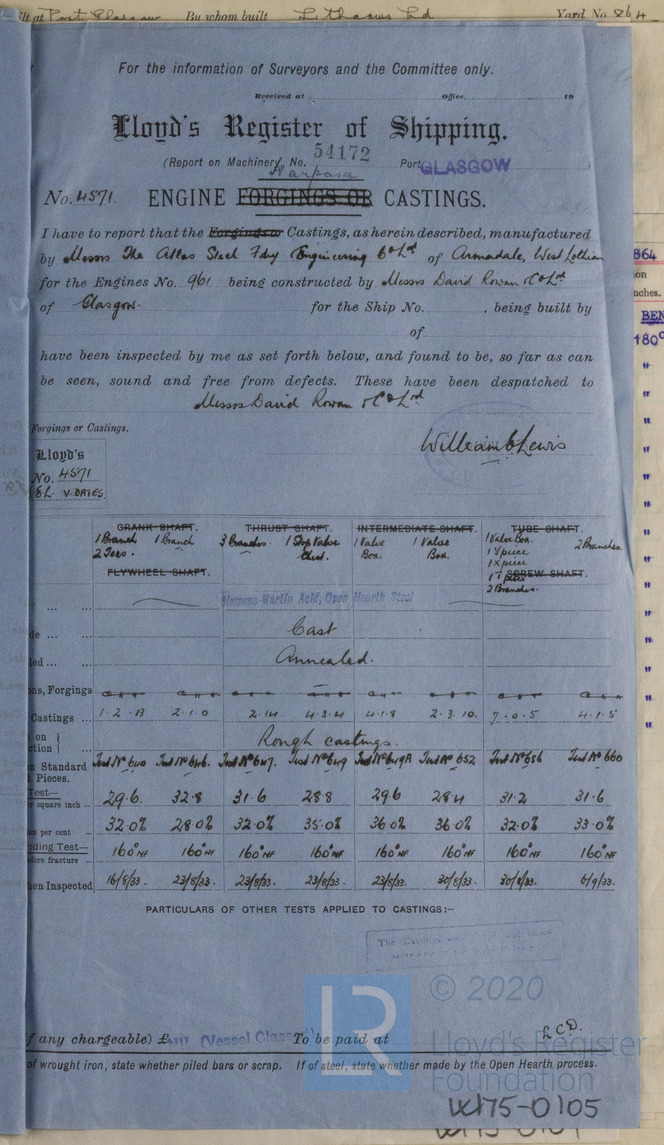 ilt at Port Glasgow By whom built Lithgows Ld Yard No. 864
For the information of Surveyors and the Committee only.
Received at Office, 19
Lloyd's Register of Shipping.
(Report on Machinery, No. 54172 Port GLASGOW )
Harpasa
No. 4571. ENGINE FORGINGS OR CASTINGS.
I have to report that the Forgings or Castings, as herein described, manufactured
by Messrs The Atlas Steel Fdry Engineering Co Ld of Armadale, West Lothian
for the Engines No. 961 being constructed by Messrs David Rowan & Co Ld
of Glasgow. for the Ship No. , being built by
of
have been inspected by me as set forth below, and found to be, so far as can
be seen, sound and free from defects. These have been despatched to
Messrs David Rowan & Co Ld
William C Lewis
Forgings or Castings.
Lloyd's
No. 4571
V. DATES
CRANK SHAFT. THRUST SHAFT. INTERMEDIATE SHAFT. TUBE SHAFT.
1 Branch 1 Branch 3 Branches. 1 Stop Valve 1 Valve 1 Valve 1 Valve Box. 2 Branches.
2 Tees. Chest. Box. Box. 1 Y piece
1 X piece
FLYWHEEL SHAFT. 1 T piece SCREW SHAFT.
2 Branches.
Siemens-Martin Acid, Open Hearth Steel
de ... ...
Cast
led ... ...
Annealed.
ns, Forgings
Castings ... 1.2.13 2.1.0 2.14. 4.3.4 4.1.8 2.3.10. 7.0.5 4.1.5
on
ction Rough castings.
n Standard Test No 640 Test No 646. Test No 647. Test No 649 Test No 649A Test No 652 Test No 656 Test No 660
Pieces.
Test—
r square inch 29.6. 32.8 31.6 28.8 29.6 28.4 31.2 31.6
on per cent 32.0% 28.0% 32.0% 35.0% 36.0% 36.0% 32.0% 33.0%
nding Test— 160° NF 160° NF 160° NF 160° NF 160° NF 160° NF 160° NF 160° NF
efore fracture
hen Inspected 16/8/33. 23/8/33. 23/8/33. 23/8/33. 23/8/33. 30/8/33. 30/8/33. 6/9/33.
PARTICULARS OF OTHER TESTS APPLIED TO CASTINGS:—
The Castings
© 2020
f any chargeable) £ Nil (Vessel Classed) To be paid at L.C.D.
of wrought iron, state whether piled bars or scrap. If of steel, state whether made by the Open Hearth process.
LR
Lloyd's Register
Foundation
W175-0105
864
on
nches.
BEN
180°